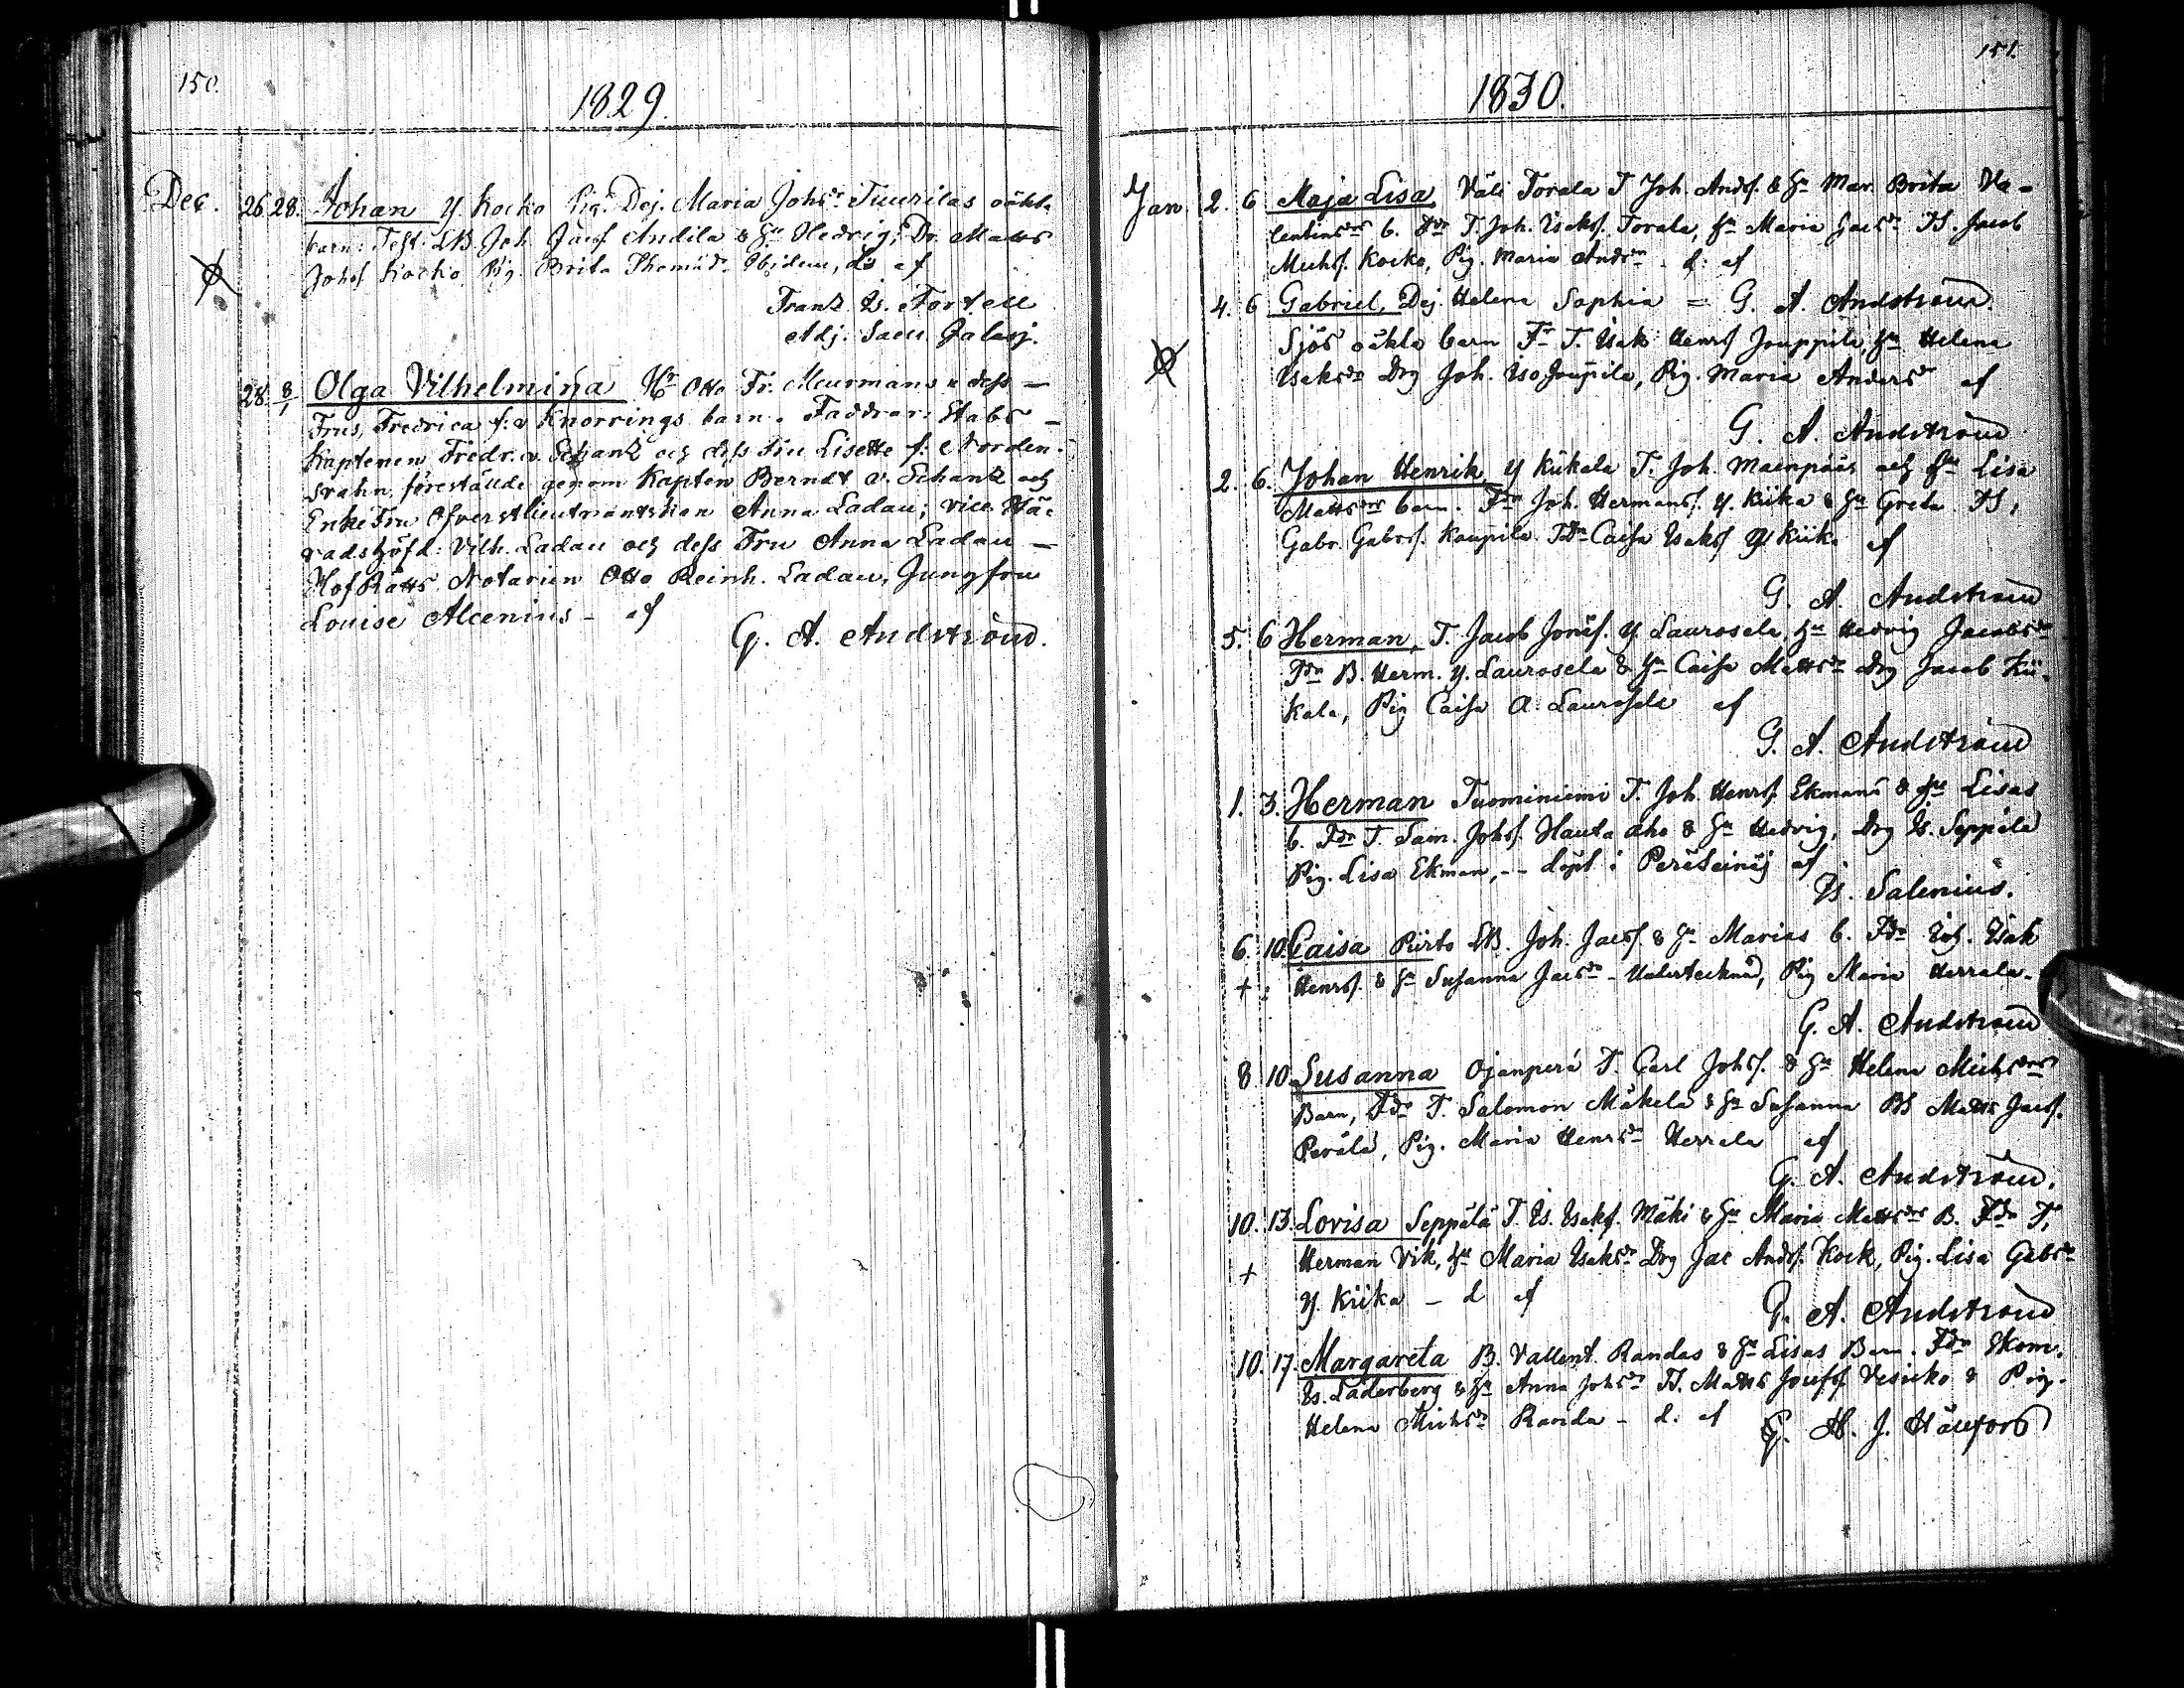 150.
1829.
Dec. 26. 28. Johan Y. Kocko Pig. Dej. Maria Johsdr Tuurilas oäkta
barn: Test. LB. Joh. Jacsf Andila & Hu Hedvig; Dr. Matts
Johsf Kocko, Pig. Brita Thomäd. Ibidem, d: af
Franz Is. Fortell
Adj. Sacu. Galasj.
28. 8/1 Olga Vilhelmina Hr Otto Fr. Meurmans u. dess —
Frus, Fredrica f: v Knorrings barn. Faddrar: Stabs —
Kaptenen Fredr. v. Schantz och dess Fru Lisette f: Norden-
svahn, föreställde genom Kapten Berndt v. Schantz och
EnkeFru Öfverstlieutnantskan Anna Ladau; vice Hä-
radshöfd: Vilh. Ladau och dess Fru Anna Ladau —
HofRätts Notarien Otto Reinh. Ladau, Jungfru
Louise Alcenius — af
G. A. Andström.
151.
1830.
Jan. 2. 6 Maja Lisa, Väli Torala T. Joh. Andsf. & Hu Mar. Brita Va-
lentinsdrs b. Fdr T. Joh. Isaksf. Torala, Hu Maria Jacsdr TS. Jacob
Michsf. Kocko, Pig. Maria Andsdr - d: af
4. 6 Gabriel, Dej. Helena Sophia = G. A. Andström.
Sjös oäkta barn Fdr T. Isak Henrsf Jouppila, Hu Helena
Isaksdr Drg Joh. Iso Joupila, Pig. Maria Andersdr af
G. A. Andström
2. 6. Johan Henrik Y Kiikala T. Joh. Mäenpääs och Hu Lisa
Mattsdrs barn. Fdr Joh. Hermansf. Y. Kiika & Hu Greta. TS,
Gabr. Gabrsf. Kaupila. TDr Caisa Isaksf Y Kiika af
G. A. Andström
5. 6 Herman, T. Jacob Jonäsf. Y Laurosela, Hu Hedvig Jacobsdr
Fdr B. Herm. Y. Laurosela & Hu Caisa Mattsdr Drg Jacob Kii-
kala, Pig Caisa A. Laurosela af
G. A. Andström
1. 3. Herman Tuominiemi T. Joh. Henrsf. Ekmans & Hu Lisas
b. Fdr T. Sam. Johsf. Hauta aho & Hu Hedvig, Drg Is. Seppälä
Pig. Lisa Ekman, -- döpt i Peräseinäj af
Is. Salenius.
6. 10. Caisa Piirto LB. Joh. Jacsf. & Hu Marias b. Fdr Isak
+ Henrsf. & Hu Susanna Jacsdr - Undertecknad, Pig Maria Herrala -
G. A. Andström
8. 10. Susanna Ojanperä T. Carl Johsf. & Hu Helena Michsdrs
Barn, Fdr T. Salomon Mäkelä & Hu Susanna BS Matts Jacsf.
Perälä, Pig. Maria Henrsdr Herrala af
G. A. Andström.
10. 13. Lovisa Seppälä T. Is. Isaksf. Mäki & Hu Maria Mattsdrs B. Fdr T.
+ Herman Vik, Hu Maria Isaksdr Drg Jac Andsf. Kock, Pig. Lisa Gabsdr
Y. Kiika - d af
G. A. Andström
10. 17. Margareta B. Vallent. Randas & Hu Lisas Barn. Fdr Skom.
Is. Läderberg & Hu Anna Johsdr TS. Matts Josefsf Visicko & Pig.
Helena Michsdr Randa - d. af
G. H. J. Hällfors